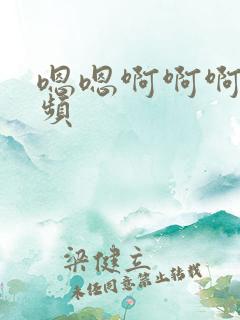 嗯嗯啊啊啊
頻
梁健立
未经同意禁止转载